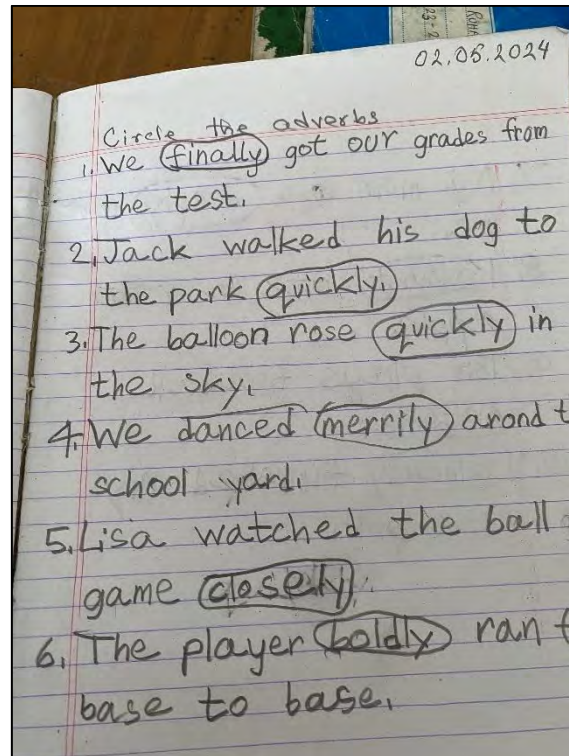 02.05.2024
Circle the adverbs
1. We finally got our grades from
the test.
2. Jack walked his dog to
the park quickly.
3. The balloon rose quickly in
the sky.
4. We danced merrily arond
school yard.
5. Lisa watched the ball
game closely.
6. The player boldly ran
base to base.